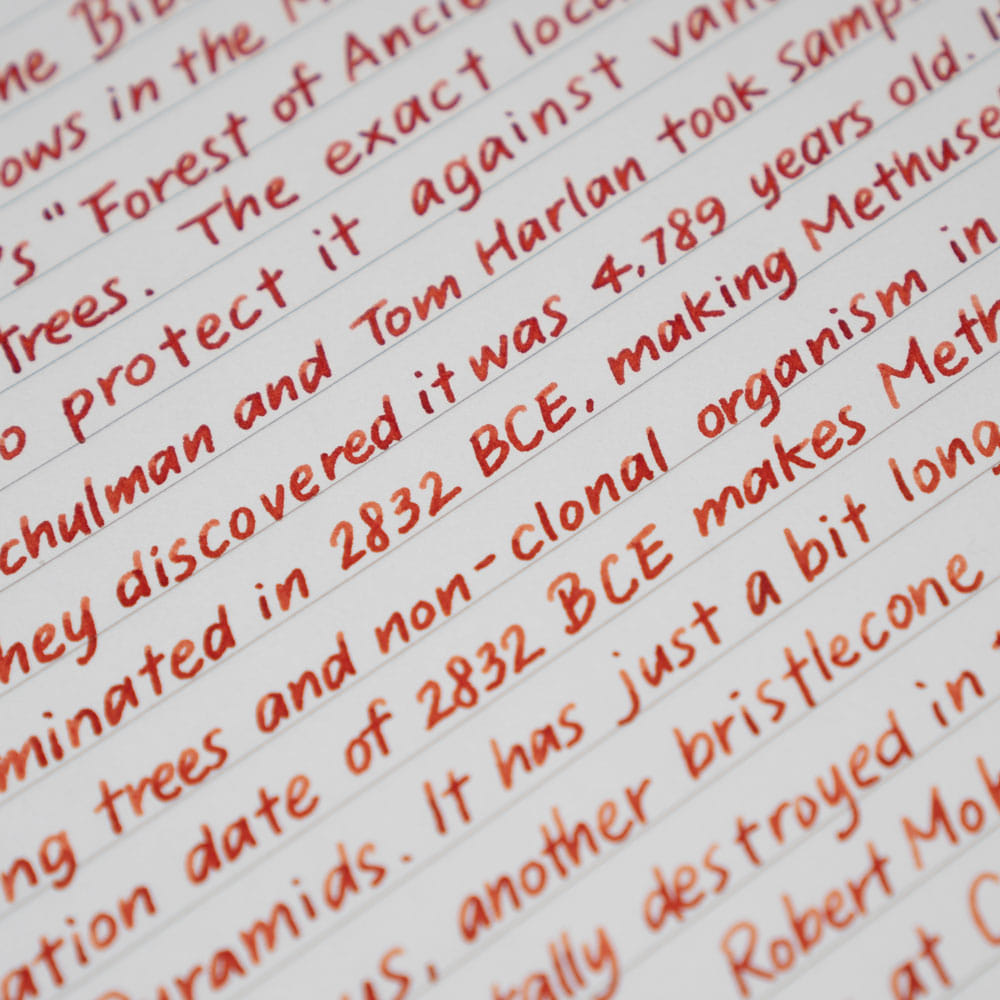 he Bib
ows in the M
's "Forest of Ancie
trees. The exact loca
o protect it against vari
chulman and Tom Harlan took samp
hey discovered it was 4,789 years old. I
minated in 2832 BCE, making Methuse
ng trees and non-clonal organism in
ation date of 2832 BCE makes Meth
yramids. It has just a bit long
us, another bristlecone
tally destroyed in
Robert Mo
at C